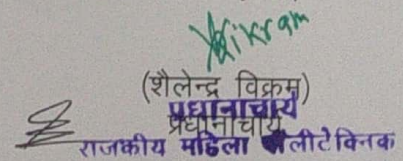 Vikram
(शैलेन्द्र विक्रम)
प्रधानाचार्य
प्रधानाचार्य
राजकीय महिला पॉलीटेक्निक